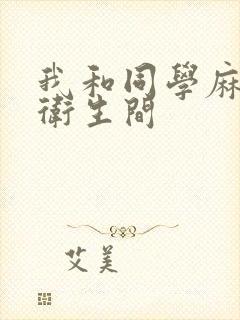 我和同學麻
衛生間
艾美